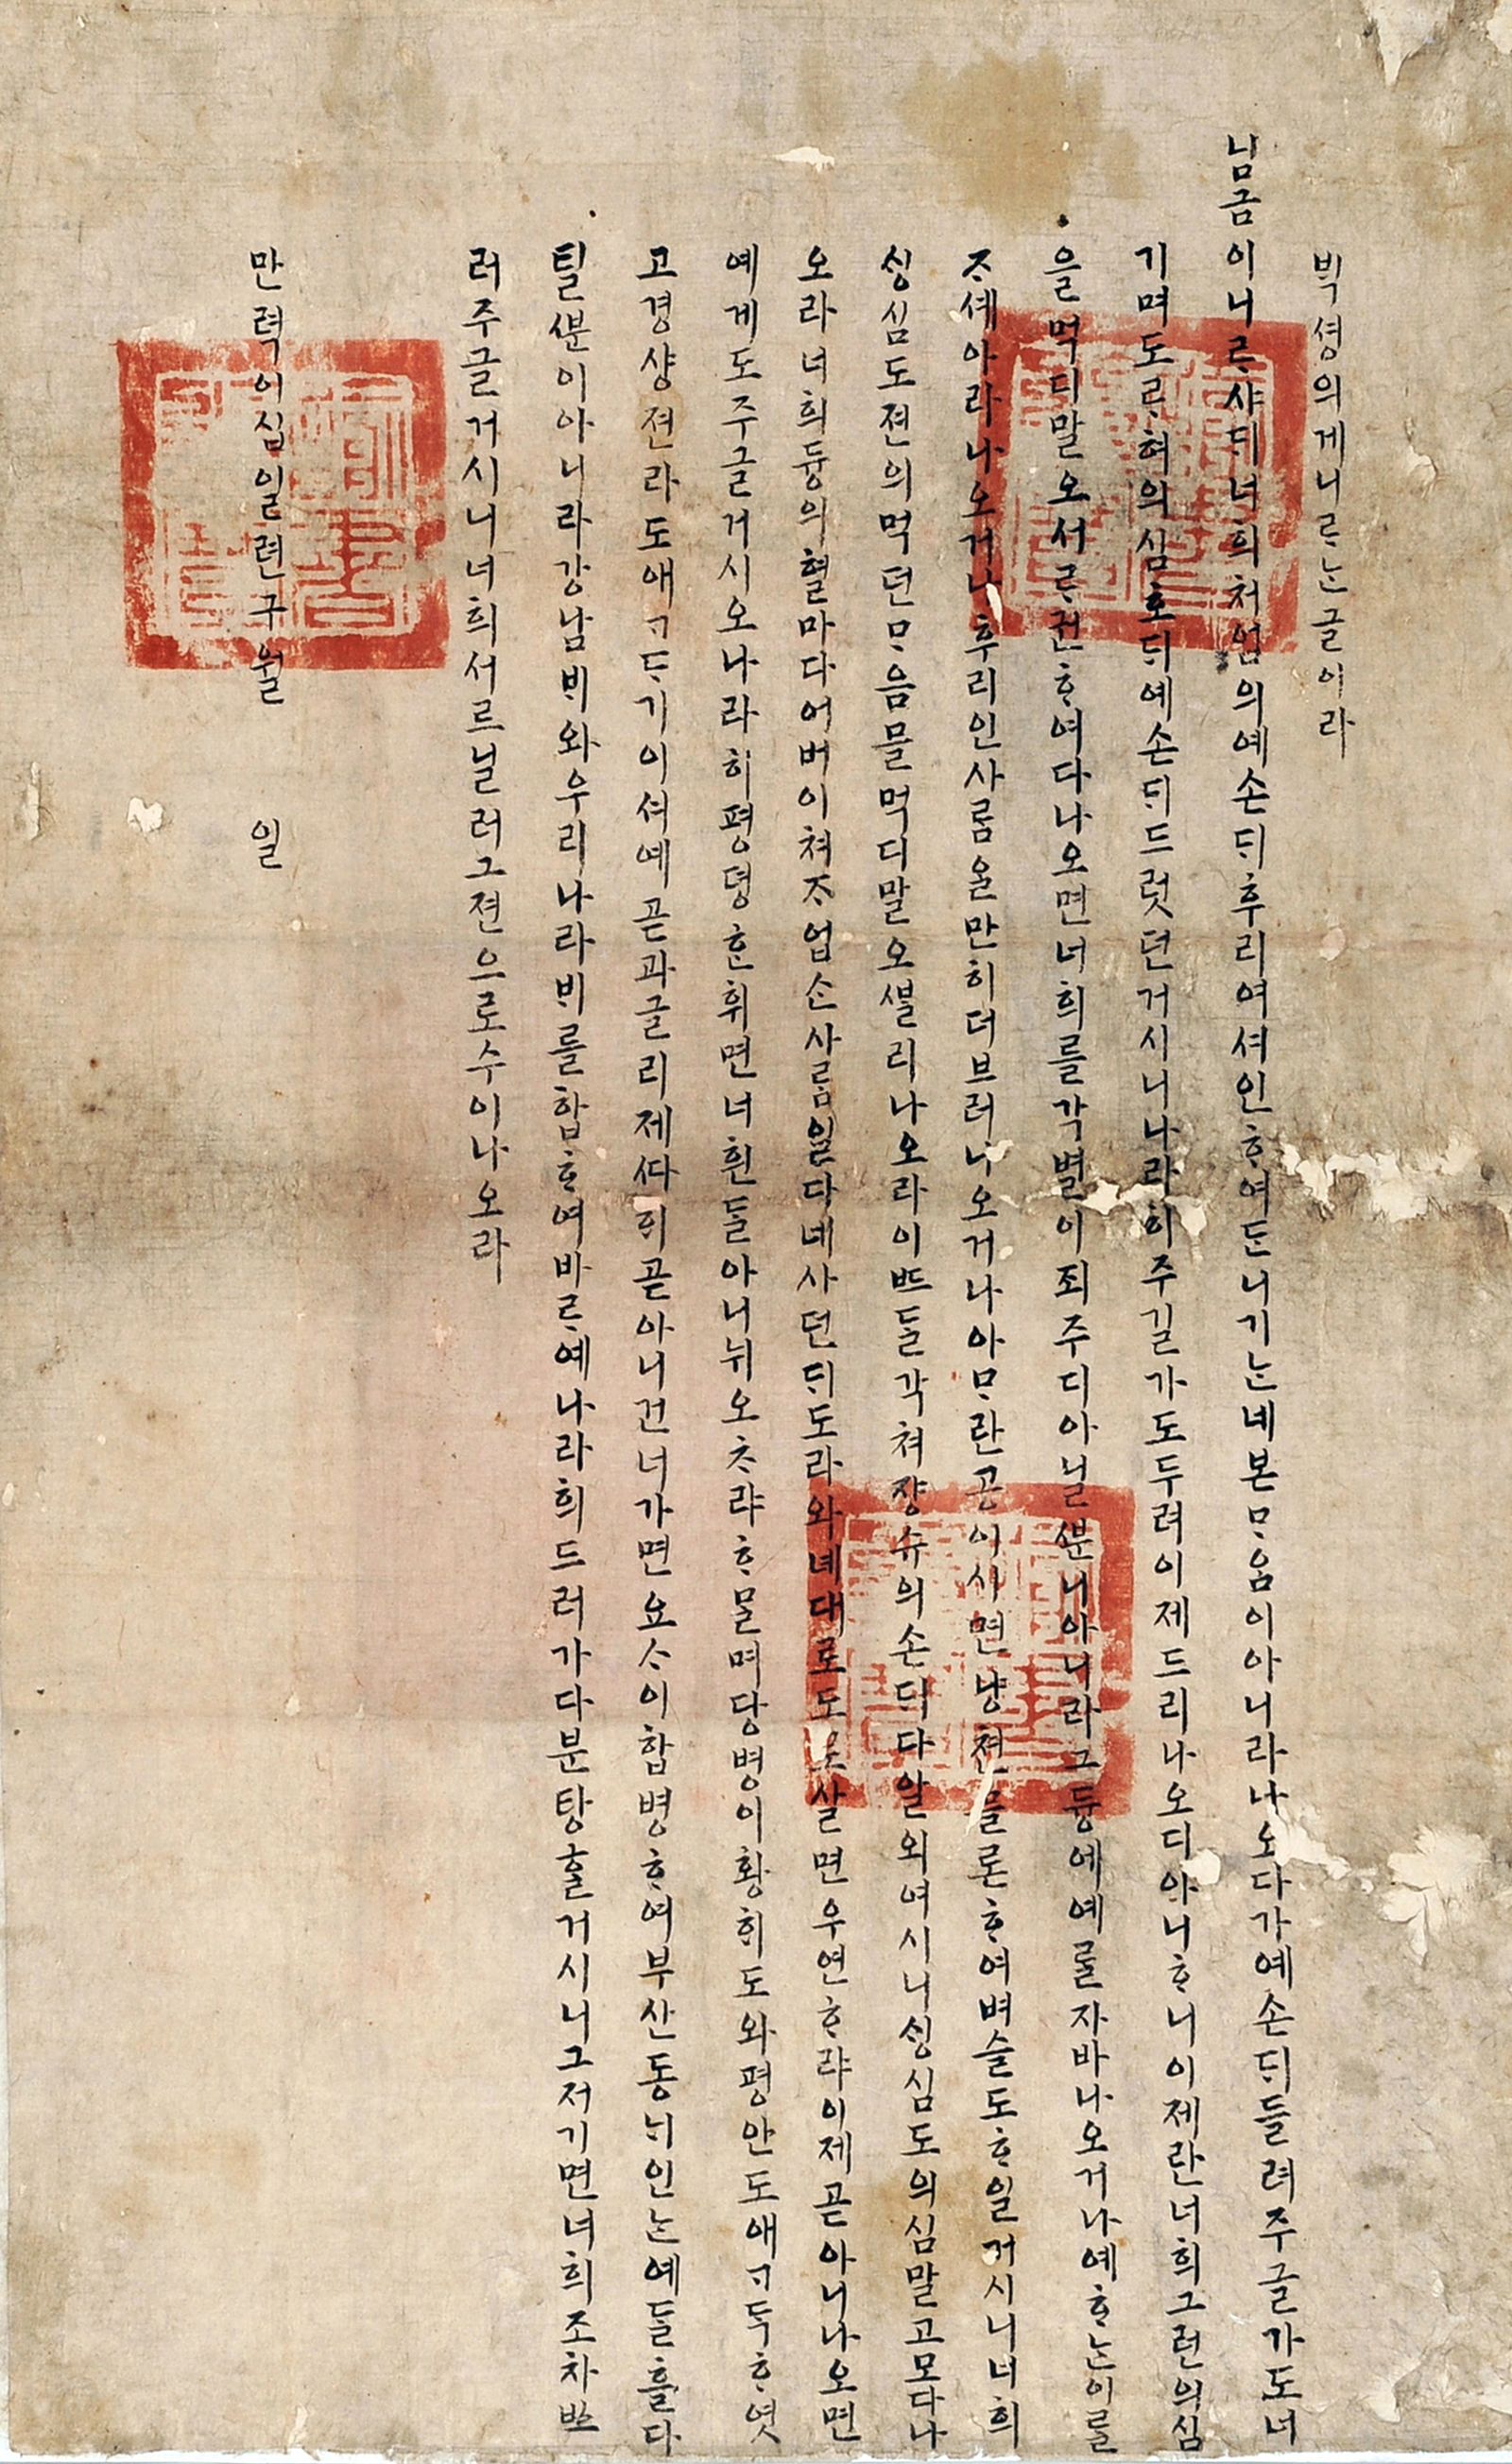 ᄇᆡᆨ셩의게 니ᄅᆞᄂᆞᆫ 글이라
님금이 니ᄅᆞ샤ᄃᆡ 너희 처엄의 예손ᄃᆡ 후리여셔 인ᄒᆞ여 ᄃᆞᆫ니기ᄂᆞᆫ 네 본 ᄆᆞ움이 아니라 나오다가 예손ᄃᆡ 들려 주글가도 너
기며 도ᄅᆞ혀 의심호ᄃᆡ 예손ᄃᆡ 드럿던 거시니 나라히 주길가도 두려 이제 드리 나오디 아니ᄒᆞ니 이제란 너희 그런 의심
을 먹디 말오 서ᄅᆞ 권ᄒᆞ여 다 나오면 너희를 각별이 죄 주디 아닐 ᄲᅮᆫ니 아니라 그 듕에 예ᄅᆞᆯ 자바 나오거나 예 ᄒᆞᄂᆞᆫ 이ᄅᆞᆯ
ᄌᆞ셰 아라 나오거나 후리인 사ᄅᆞᆷ을 만히 더브러 나오거나 아ᄆᆞ란 공 이시면 냥쳔 믈론ᄒᆞ여 벼슬도 ᄒᆞ일 거시니 너희
ᄉᆡᆼ심도 젼의 먹던 ᄆᆞ음믈 먹디 말오 ᄲᆞᆯ리 나오라 이 ᄠᅳ들 각 쳐 쟝슈의손ᄃᆡ 다 알외여시니 ᄉᆡᆼ심도 의심 말고 모다 나
오라 너희 듕의 혈마 다 어버이 쳐ᄌᆞ 업ᄉᆞᆫ 사ᄅᆞᆷ일다 네 사던 ᄃᆡ 도라와 녜대로 도로 살면 우연ᄒᆞ랴 이제 곧 아니 나오면
예게도 주글 거시오 나라히 평뎡ᄒᆞᆫ 휘면 너흰들 아니 뉘오ᄎᆞ랴 ᄒᆞᄆᆞᆯ며 당병이 황ᄒᆡ도와 평안도애 ᄀᆞᄃᆞᆨᄒᆞ엿
고 경샹 젼라도애 ᄀᆞᄃᆞ기 이셔 예 곧 과글리 제 ᄯᅡᄒᆡ 곧 아니 건너가면 요ᄉᆞ이 합병ᄒᆞ여 부산 동ᄂᆡ 인ᄂᆞᆫ 예들흘 다
틸 ᄲᅮᆫ이 아니라 강남 ᄇᆡ와 우리나라 ᄇᆡ를 합ᄒᆞ여 바ᄅᆞ 예나라희 드러가 다 분탕ᄒᆞᆯ 거시니 그 저기면 너희조차 ᄡᅳ
러 주글 거시니 너희 서르 닐러 그 젼으로 수이 나오라
만력 이십일년 구월 일